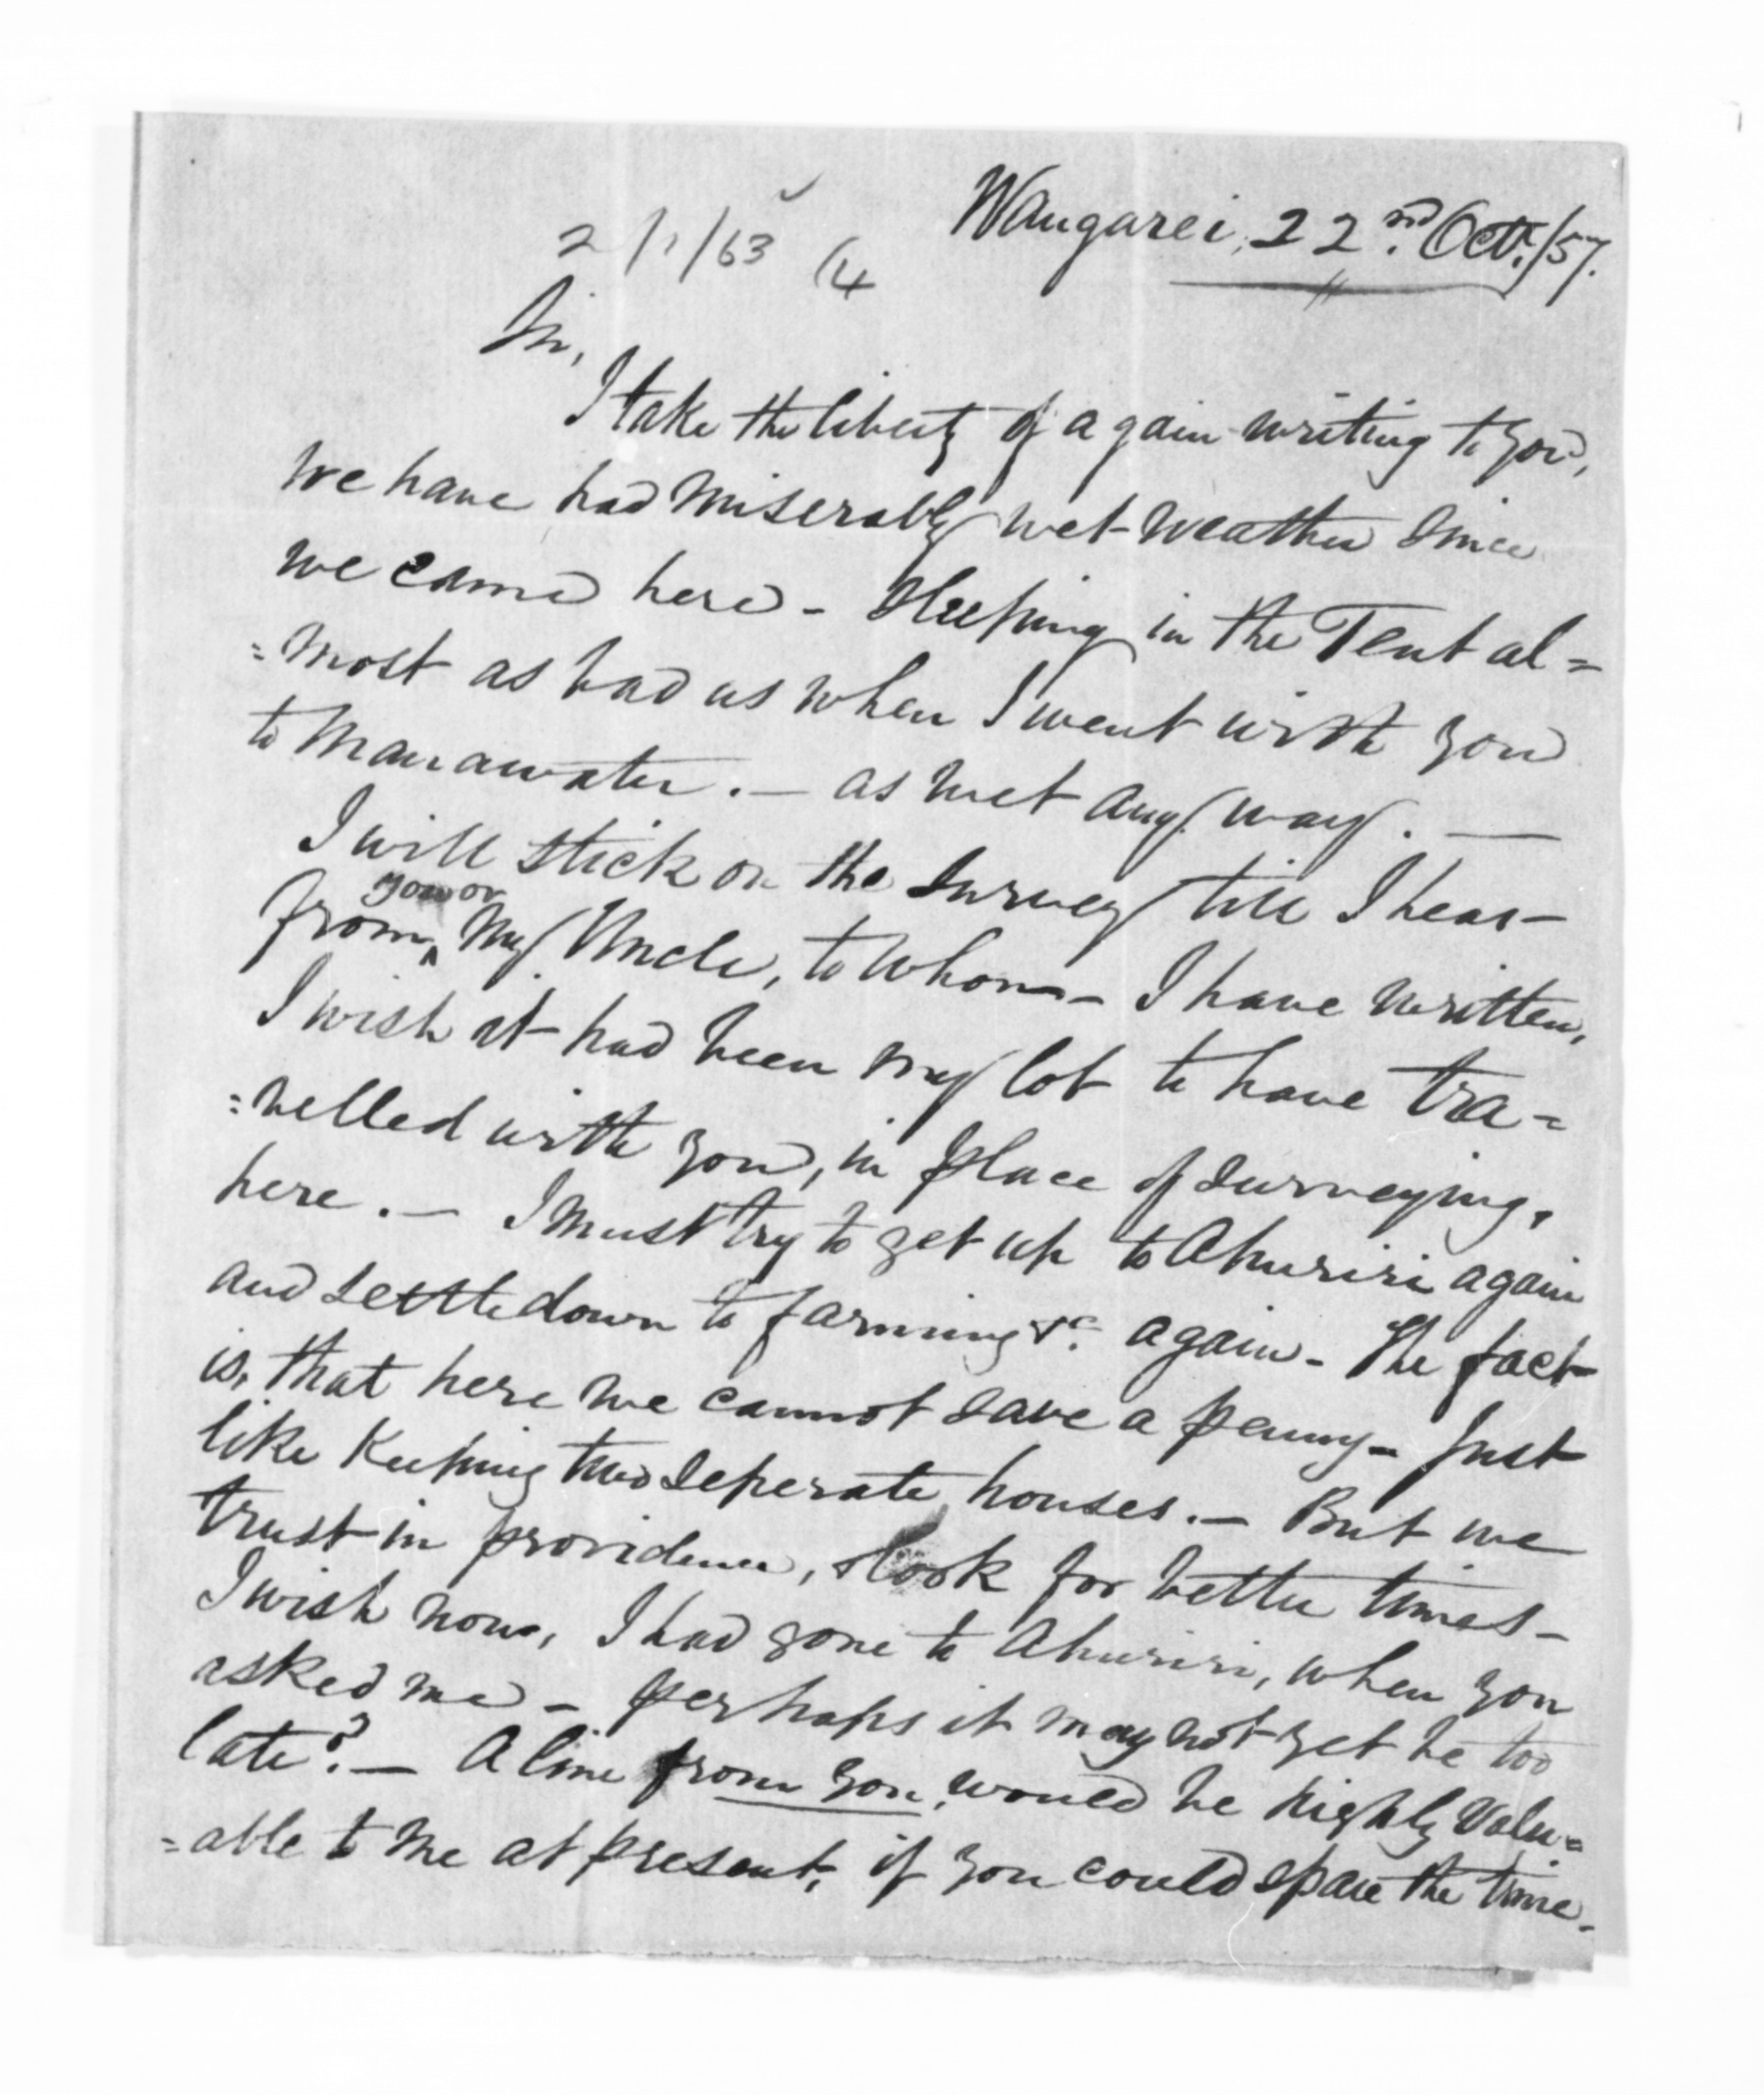 Wangarei, 22nd. Octr./57.
2/1/63 (4
Sir,
I take the liberty of again writing to you,
We have had miserably wet weather since
we came here - Sleeping in the Tent al=
=most as bad as when I went with you
to Manawatu. — as wet any way. —
I will stick on the Survey till I hear
you or
from ^ My Uncle, to whom - I have written,
I wish it had been my lot to have tra=
=velled with you, in place of surveying,
here. — I must try to get up to Ahuriri again
and settle down to farming &c. again - The fact
is, that here we cannot save a penny - Just
like Keeping two seperate houses. — But we
trust in providence, & look for better times -
I wish now, I had gone to Ahuriri, when you
asked me - perhaps it may not yet be too
late? — A line from you, would be highly valu=
=able to me at present, if you could spare the time.